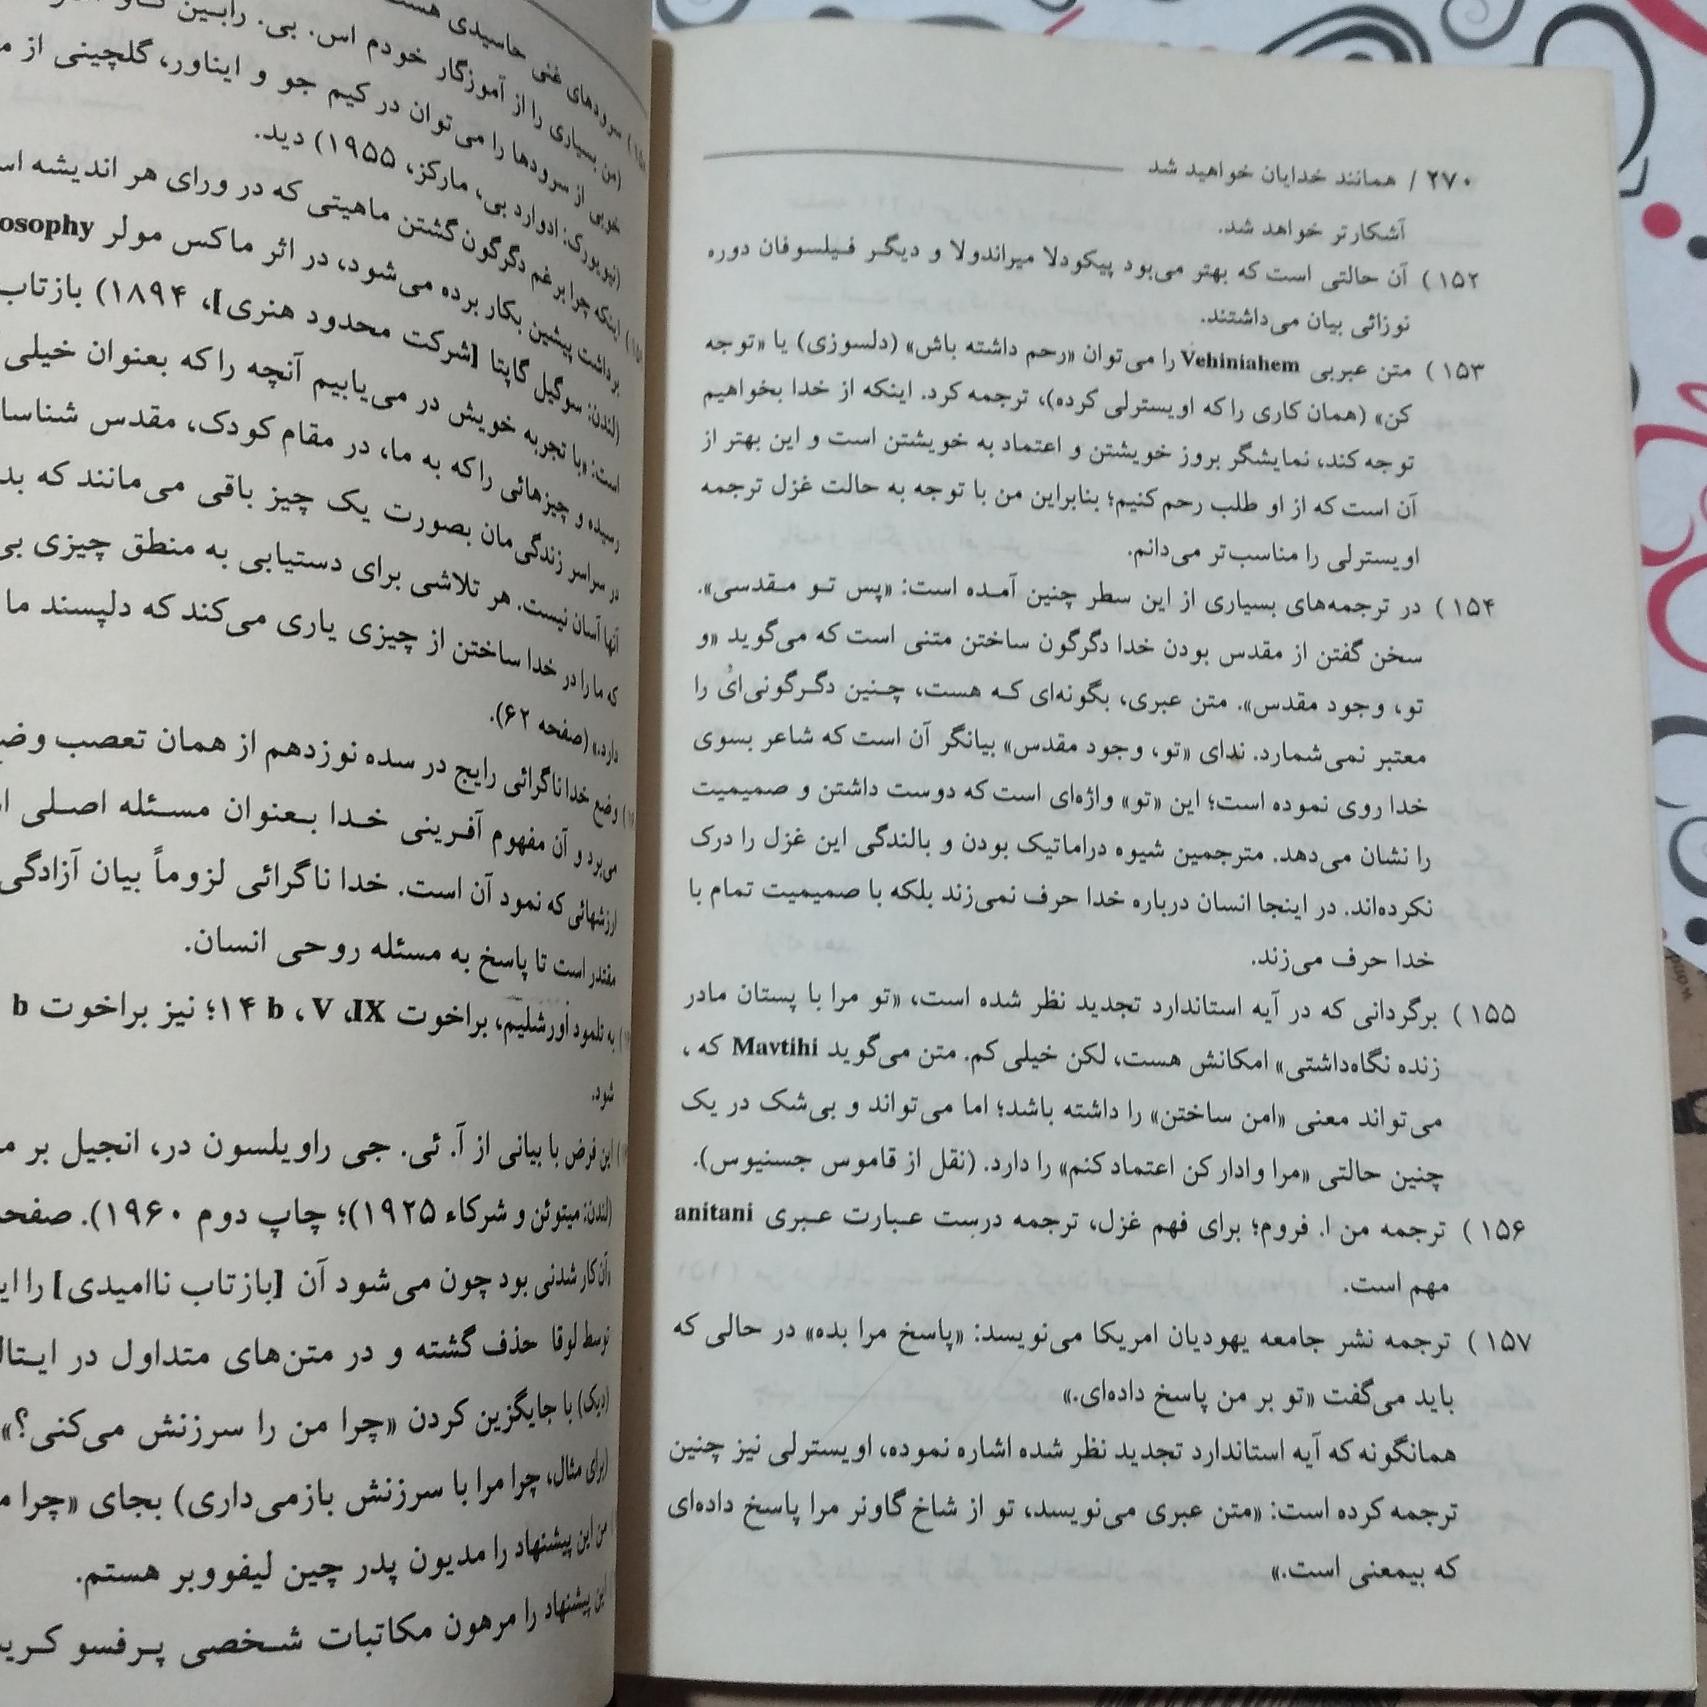 ۲۷۰ / همانند خدایان خواهید شد
آشکارتر خواهد شد.
۱۵۲) آن حالتی است که بهتر می‌بود پیکودلا میراندولا و دیگر فیلسوفان دوره
نوزائی بیان می‌داشتند.
۱۵۳) متن عبریی Vehiniahem را می‌توان «رحم داشته باش» (دلسوزی) یا «توجه
کن» (همان کاری را که اویسترلی کرده)، ترجمه کرد. اینکه از خدا بخواهیم
توجه کند، نمایشگر بروز خویشتن و اعتماد به خویشتن است و این بهتر از
آن است که از او طلب رحم کنیم؛ بنابراین من با توجه به حالت غزل ترجمه
اویسترلی را مناسب‌تر می‌دانم.
۱۵۴) در ترجمه‌های بسیاری از این سطر چنین آمده است: «پس تو مقدسی».
سخن گفتن از مقدس بودن خدا دگرگون ساختن متنی است که می‌گوید «و
تو، وجود مقدس». متن عبری، بگونه‌ای که هست، چنین دگرگونی‌ای را
معتبر نمی‌شمارد. ندای «تو، وجود مقدس» بیانگر آن است که شاعر بسوی
خدا روی نموده است؛ این «تو» واژه‌ای است که دوست داشتن و صمیمیت
را نشان می‌دهد. مترجمین شیوه دراماتیک بودن و بالندگی این غزل را درک
نکرده‌اند. در اینجا انسان درباره خدا حرف نمی‌زند بلکه با صمیمیت تمام با
خدا حرف می‌زند.
۱۵۵) برگردانی که در آیه استاندارد تجدید نظر شده است، «تو مرا با پستان مادر
زنده نگاه‌داشتی» امکانش هست، لکن خیلی کم. متن می‌گوید Mavtihi که ،
می‌تواند معنی «امن ساختن» را داشته باشد؛ اما می‌تواند و بی‌شک در یک
چنین حالتی «مرا وادار کن اعتماد کنم» را دارد. (نقل از قاموس جسنیوس).
۱۵۶) ترجمه من ا. فروم؛ برای فهم غزل، ترجمه درست عبارت عبری anitani
مهم است.
۱۵۷) ترجمه نشر جامعه یهودیان امریکا می‌نویسد: «پاسخ مرا بده» در حالی که
باید می‌گفت «تو بر من پاسخ داده‌ای.»
همانگونه که آیه استاندارد تجدید نظر شده اشاره نموده، اویسترلی نیز چنین
ترجمه کرده است: «متن عبری می‌نویسد، تو از شاخ گاونر مرا پاسخ داده‌ای
که بیمعنی است.»
سرودهای غنی حاسیدی
(من بسیاری را از آموزگار خودم اس. بی. رابین
خوبی از سرودها را می‌توان در کیم جو و ایناور، گلچینی از
(نیویورک: ادوارد بی، مارکز، ۱۹۵۵) دید.
اینکه چرا برغم دگرگون گشتن ماهیتی که در ورای هر اندیشه
برداشت پیشین بکار برده می‌شود، در اثر ماکس مولر
(لندن: سوگیل گاپتا [شرکت محدود هنری]، ۱۸۹۴) بازتاب
است: «با تجربه خویش در می‌یابیم آنچه را که بعنوان خیلی
رسیده و چیزهائی را که به ما، در مقام کودک، مقدس
در سراسر زندگی‌مان بصورت یک چیز باقی می‌مانند که
آنها آسان نیست. هر تلاشی برای دستیابی به منطق چیزی
که ما را در خدا ساختن از چیزی یاری می‌کند که دلپسند ما
دارد.» (صفحه ۶۲).
وضع خدا ناگرائی رایج در سده نوزدهم از همان تعصب
می‌برد و آن مفهوم آفرینی خدا بعنوان مسئله اصلی
ارزشهائی که نمود آن است. خدا ناگرائی لزوماً بیان آزادگی
مقتدر است تا پاسخ به مسئله روحی انسان.
به تلمود اورشلیم، براخوت IX، V، ۱۴ b؛ نیز براخوت b
شود.
این فرض با بیانی از آ. ئی. جی راویلسون در، انجیل بر
(لندن: میتوئن و شرکاء ۱۹۲۵)؛ چاپ دوم ۱۹۶۰).
کار شدنی بود چون می‌شود آن [بازتاب ناامیدی] را
توسط لوقا حذف گشته و در متن‌های متداول در
(دیک) با جایگزین کردن «چرا من را سرزنش می‌کنی؟»
(برای مثال، چرا مرا با سرزنش بازمی‌داری) بجای «چرا
من این پیشنهاد را مدیون پدر چین لیفووبر هستم.
این پیشنهاد را مرهون مکاتبات شخصی پرفسو